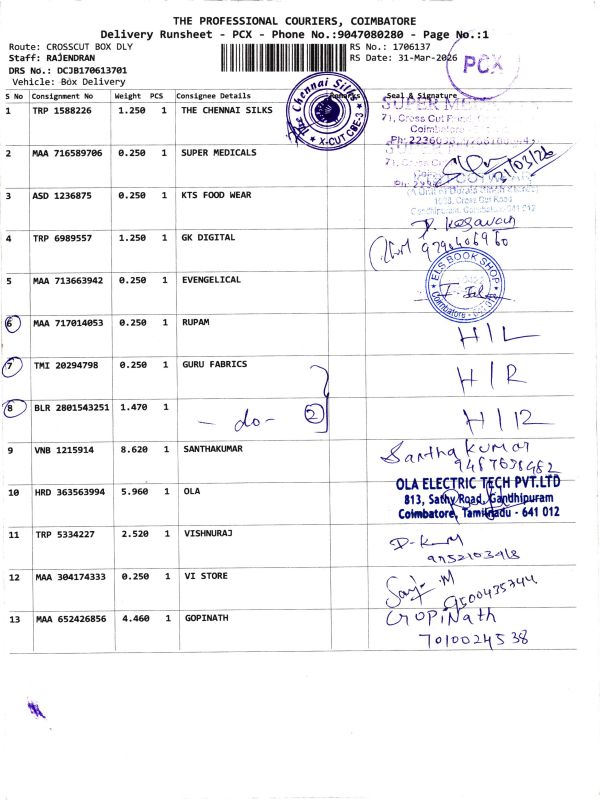 THE PROFESSIONAL COURIERS, COIMBATORE
Delivery Runsheet - PCX - Phone No.:9047080280 - Page No.:1
Route: CROSSCUT BOX DLY RS No.: 1706137
Staff: RAJENDRAN RS Date: 31-Mar-2026
DRS No.: DCJB170613701
Vehicle: Box Delivery
PCX
S No Consignment No Weight PCS Consignee Details Seal & Signature
1 TRP 1588226 1.250 1 THE CHENNAI SILKS
The Chennai Silks X-CUT CBE-3
SUPER
71, Cross Cut
Coimbatore
2 MAA 716589706 0.250 1 SUPER MEDICALS
21/03/26
3 ASD 1236875 0.250 1 KTS FOOD WEAR
Cross Cut Road
Gandhipuram, Coimbatore-641 012
4 TRP 6989557 1.250 1 GK DIGITAL
D. Kesavan
5 MAA 713663942 0.250 1 EVENGELICAL
ELS BOOK SHOP
6 MAA 717014053 0.250 1 RUPAM H/L
7 TMI 20294798 0.250 1 GURU FABRICS H/R
8 BLR 2801543251 1.470 1 - do- 2 H/R
9 VNB 1215914 8.620 1 SANTHAKUMAR Santhakumar
10 HRD 363563994 5.960 1 OLA
OLA ELECTRIC TECH PVT.LTD
813, Sathy Road, Gandhipuram
Coimbatore, Tamilnadu - 641 012
11 TRP 5334227 2.520 1 VISHNURAJ
12 MAA 304174333 0.250 1 VI STORE
9500435744
13 MAA 652426856 4.460 1 GOPINATH GOPINath
7010024538